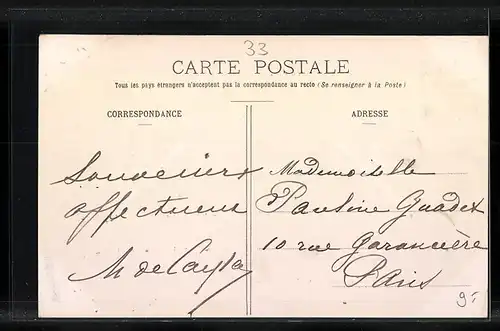 33
CARTE POSTALE
Tous les pays étrangers n'acceptent pas la correspondance au recto (Se renseigner à la Poste)
CORRESPONDANCE
ADRESSE
Souvenirs
affectueux
M de
Mademoiselle
Pauline Guadet
10 rue Garancière
Paris